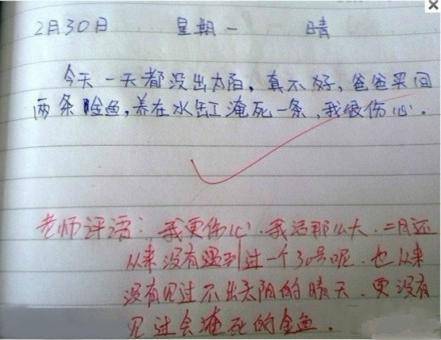 2月30日 星期一 晴
今天一天都没出太阳，真不好，爸爸买回
两条金鱼，养在水缸淹死一条，我很伤心。
老师评语：我更伤心。我活那么大，二月还
从来没有遇到过一个30号呢。也从来
没有见过不出太阳的晴天，更没有
见过会淹死的金鱼。